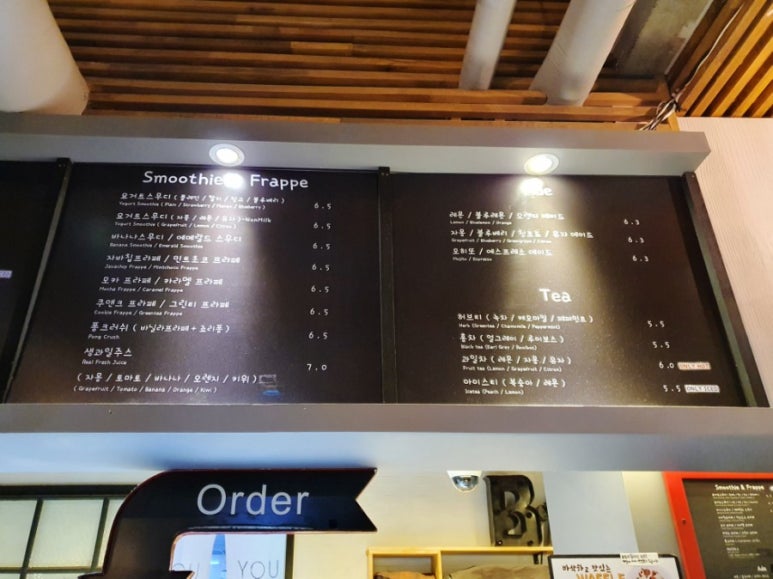 Smoothie & Frappe
요거트스무디 ( 플레인 / 딸기 / 망고 / 블루베리 ) 6.5
Yogurt Smoothie ( Plain / Strawberry / Mango / Blueberry )
요거트스무디 ( 자몽 / 레몬 / 유자 )-NonMilk 6.5
Yogurt Smoothie ( Grapefruit / Lemon / Citron )
바나나스무디 / 에메랄드 스무디 6.5
Banana Smoothie / Emerald Smoothie
자바칩프라페 / 민트초코 프라페 6.5
Javachip Frappe / Mintchoco Frappe
모카 프라페 / 카라멜 프라페 6.5
Mocha Frappe / Caramel Frappe
쿠앤크 프라페 / 그린티 프라페 6.5
Cookie Frappe / Greentea Frappe
퐁크러쉬 ( 바닐라프라페 + 죠리퐁 ) 6.5
Pong Crush
생과일주스 7.0
Real Fresh Juice
( 자몽 / 토마토 / 바나나 / 오렌지 / 키위 )
( Grapefruit / Tomato / Banana / Orange / Kiwi )
레몬 / 블루레몬 / 오렌지 에이드 6.3
Lemon / Bluelemon / Orange
자몽 / 블루베리 / 청포도 / 유자 에이드 6.3
Grapefruit / Blueberry / Greengrape / Citron
모히또 / 에스프레소 에이드 6.3
Mojito / Espresso
Tea
허브티 ( 녹차 / 캐모마일 / 페퍼민트 ) 5.5
Herb (Greentea / Chamomile / Peppermint)
홍차 ( 얼그레이 / 루이보스 ) 5.5
Black tea (Earl Grey / Rooibos)
과일차 ( 레몬 / 자몽 / 유자 ) 6.0 ONLY HOT
Fruit tea (Lemon / Grapefruit / Citron)
아이스티 ( 복숭아 / 레몬 ) 5.5 ONLY ICED
Icetea (Peach / Lemon)
Order
YOU
B
Smoothie & Frappe
Ade
바삭하고 맛있는
WAFFLE